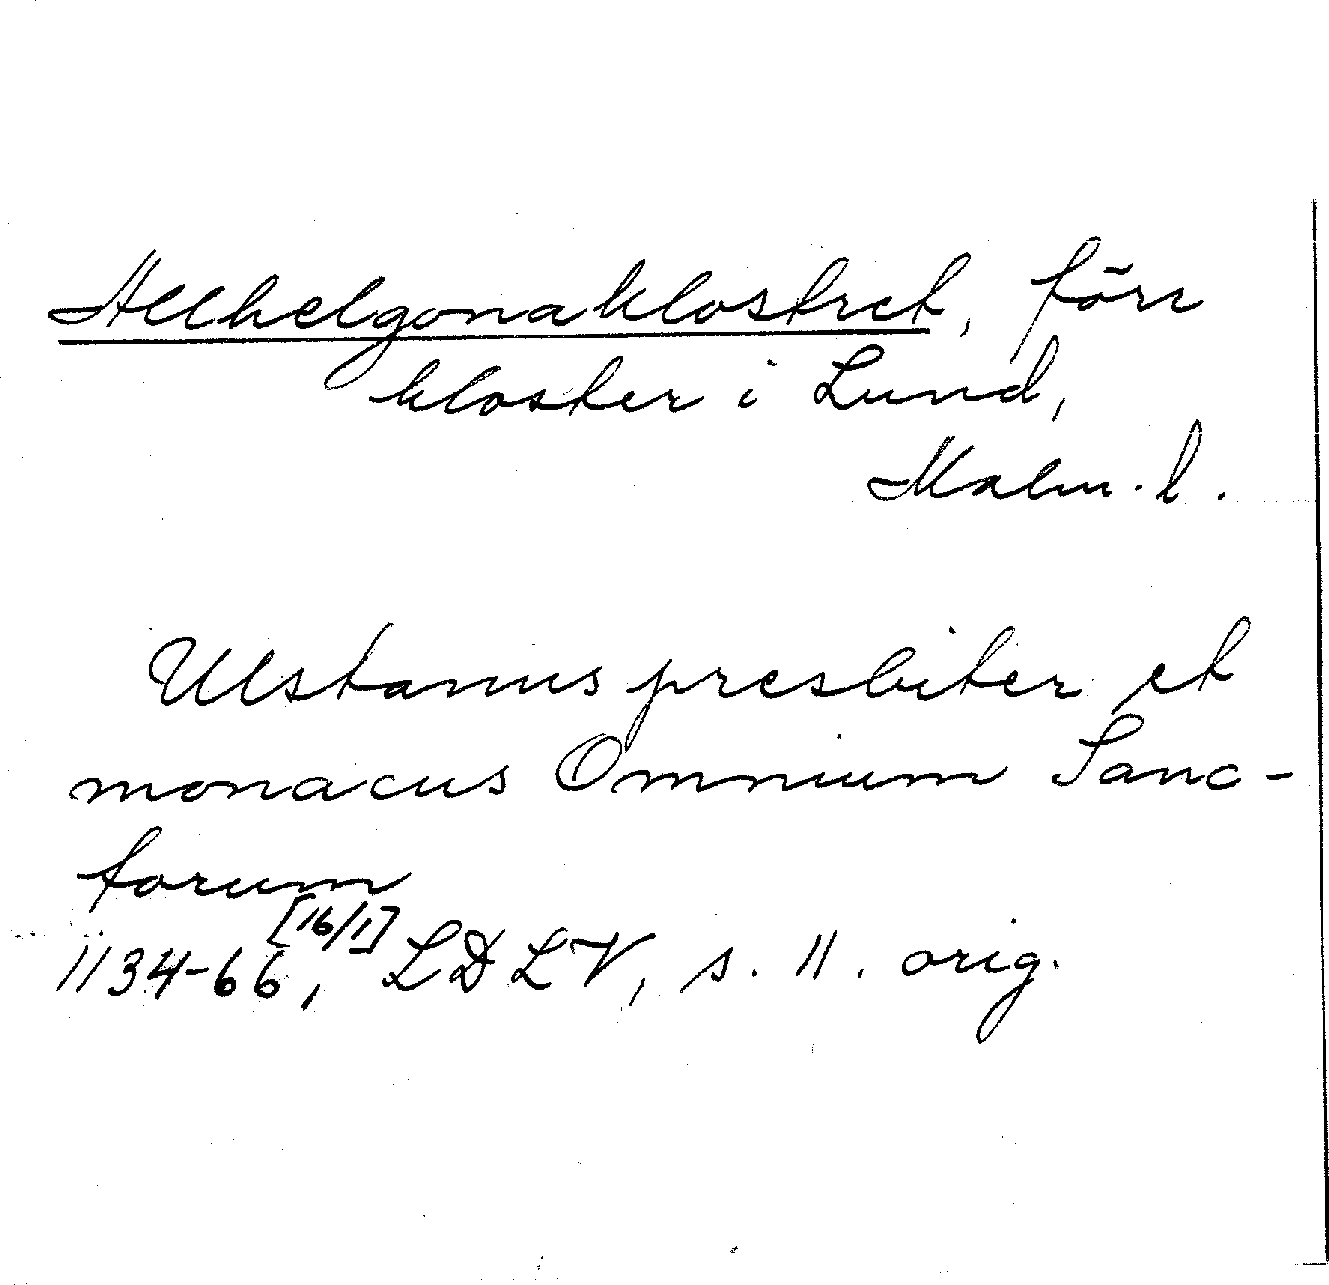 Allhelgonaklostret, förr
kloster i Lund,
Malm. l.
Ulstanus presbiter et
monacus Omnium Sanc-
torum
[16/1]
1134-66, LDLV, s. 11. orig.